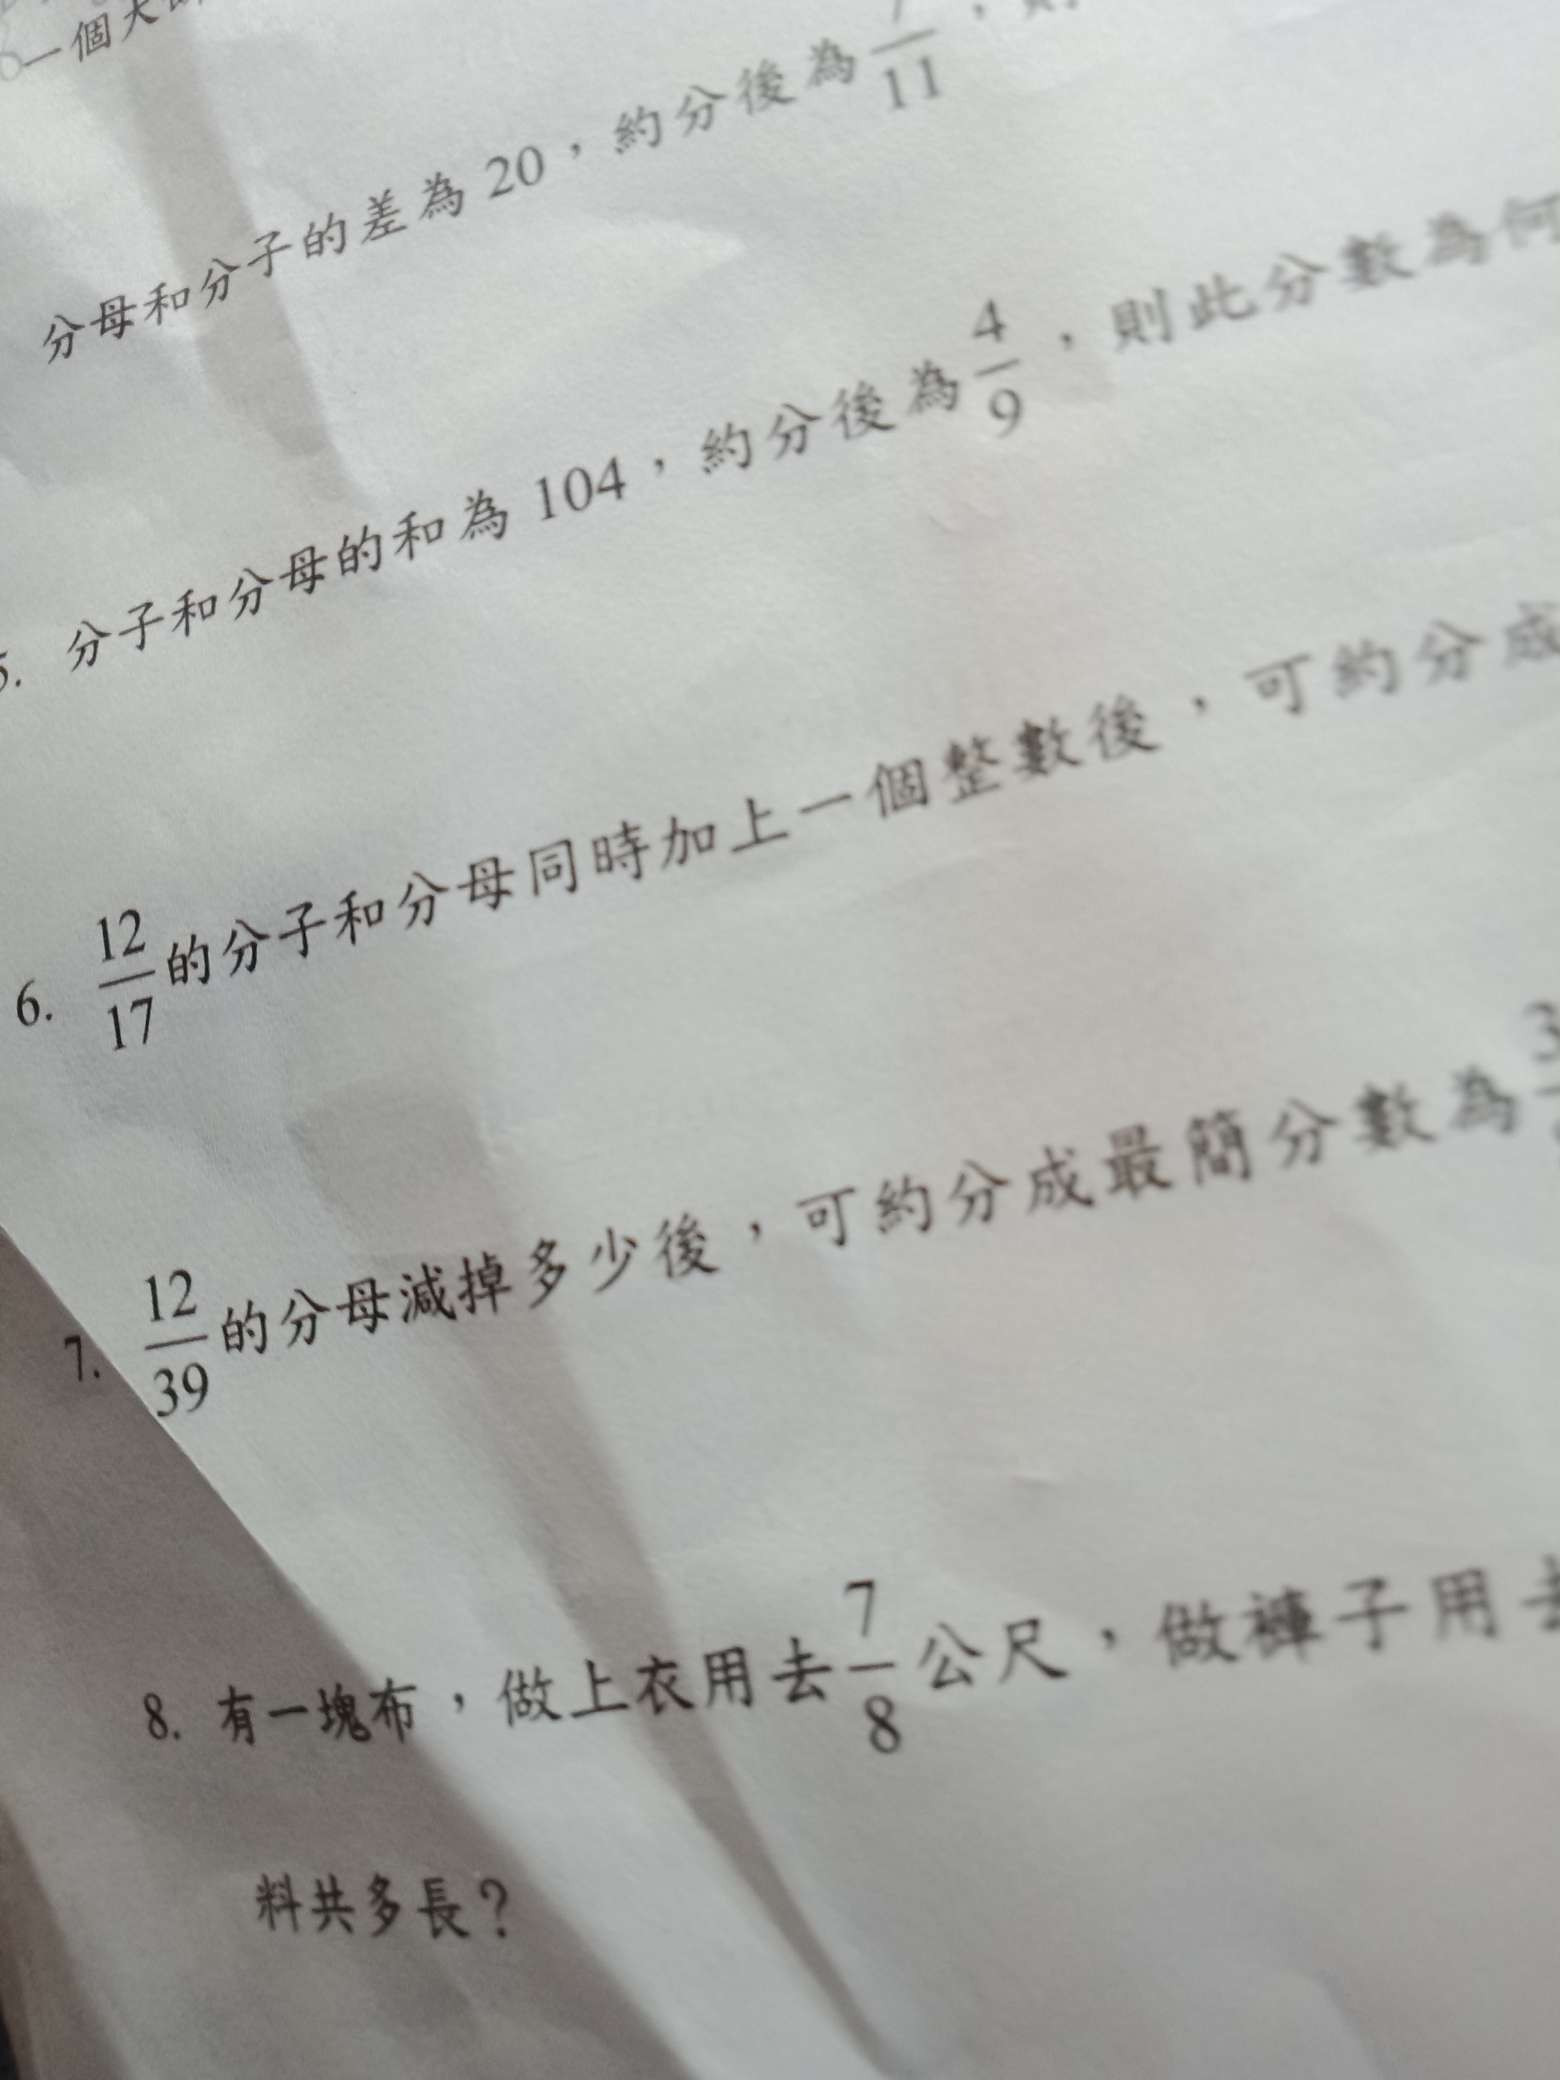 一個大
分母和分子的差為 20，約分後為 7/11，則
5. 分子和分母的和為 104，約分後為 4/9，則此分數為何
6. 12/17 的分子和分母同時加上一個整數後，可約分成
7. 12/39 的分母減掉多少後，可約分成最簡分數為 3
8. 有一塊布，做上衣用去 7/8 公尺，做褲子用去
料共多長？